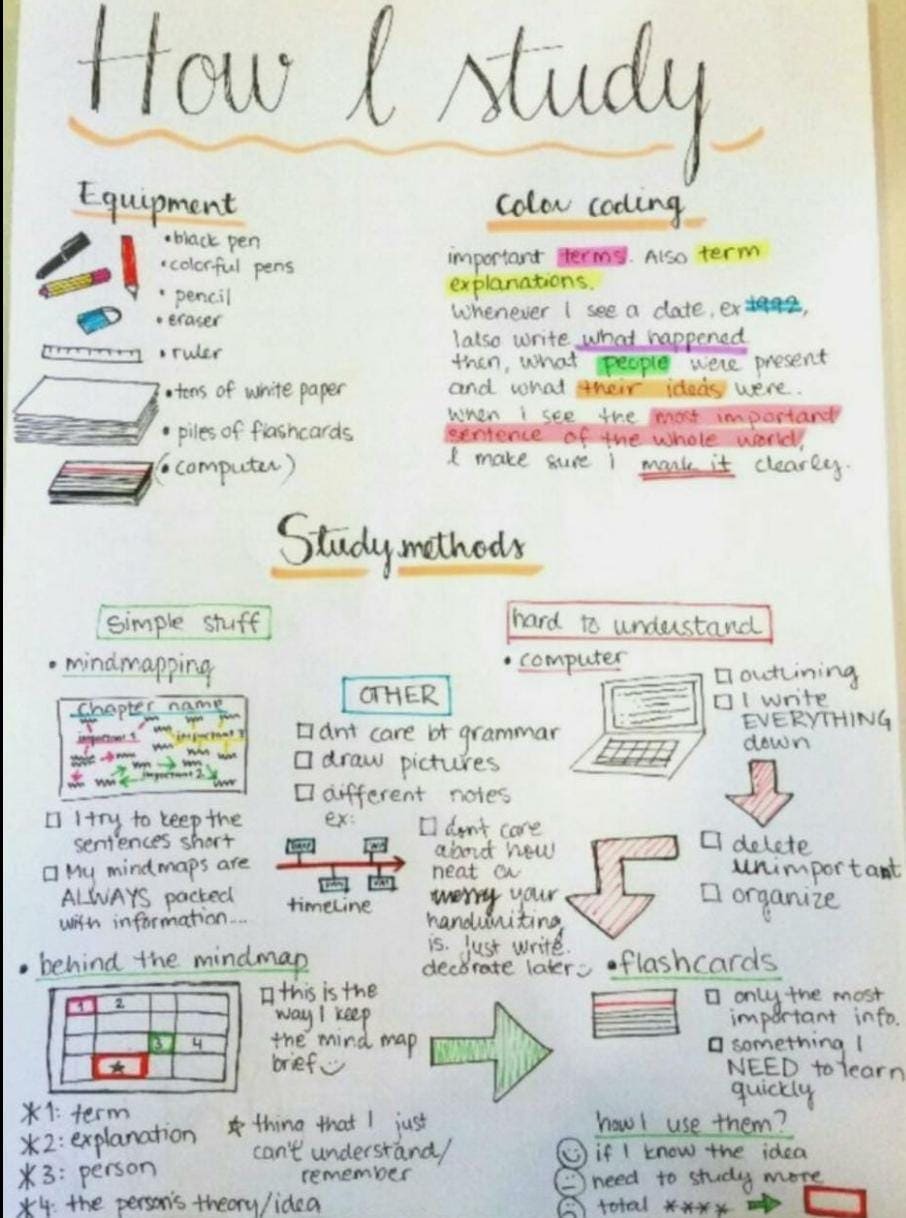 How I study
Equipment
• black pen
• colorful pens
• pencil
• eraser
• ruler
• tons of white paper
• piles of flashcards
(• computer)
Color coding
important terms. Also term
explanations.
Whenever I see a date, ex 1992,
I also write what happened
then, what people were present
and what their ideas were..
When I see the most important
sentence of the whole world,
I make sure I mark it clearly.
Study methods
simple stuff
• mindmapping
Chapter name
important 1
important 3
important 2
☐ I try to keep the
sentences short
☐ My mindmaps are
ALWAYS packed
with information...
OTHER
☐ dnt care bt grammar
☐ draw pictures
☐ different notes
ex:
timeline
☐ dont care
about how
neat or
messy your
handwriting
is. Just write.
decorate later
hard to understand
• computer
☐ outlining
☐ I write
EVERYTHING
down
☐ delete
unimportant
☐ organize
• behind the mindmap
1 2
3 4
★
☐ this is the
way I keep
the mind map
brief
* 1: term
* 2: explanation
* 3: person
* 4: the person's theory/idea
★ thing that I just
can't understand/
remember
• flashcards
☐ only the most
important info.
☐ something I
NEED to learn
quickly
how I use them?
if I know the idea
need to study more
total ****